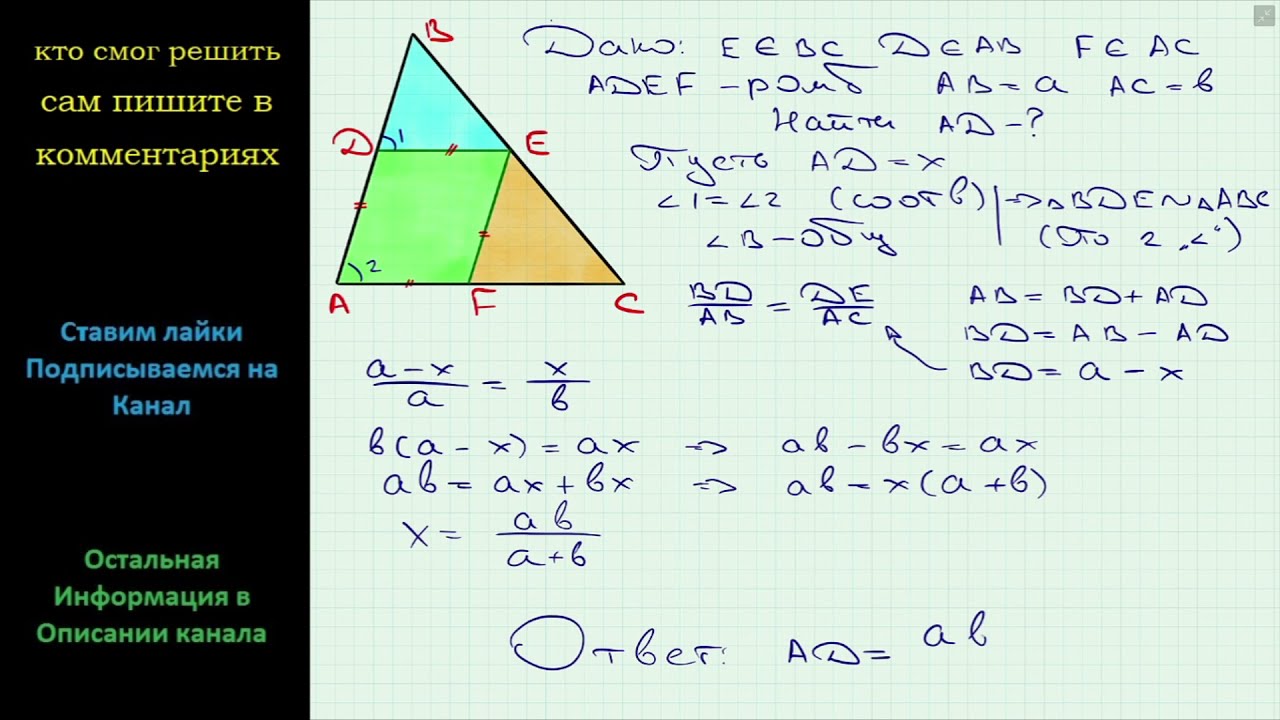 кто смог решить
сам пишите в
комментариях
Ставим лайки
Подписываемся на
Канал
Остальная
Информация в
Описании канала
B
D 1 E
A 2 F C
Дано: E ∈ BC D ∈ AB F ∈ AC
ADEF – ромб AB = a AC = в
Найти AD – ?
Пусть AD = x
∠1 = ∠2 (соотв) | => △BDE ~ △ABC
∠B – общ (по 2 „∠“)
BD/AB = DE/AC
AB = BD + AD
BD = AB – AD
BD = a – x
a – x / a = x / в
в(a – x) = ax => aв – вx = ax
aв = ax + вx => aв = x(a + в)
x = aв / a + в
Ответ: AD = aв